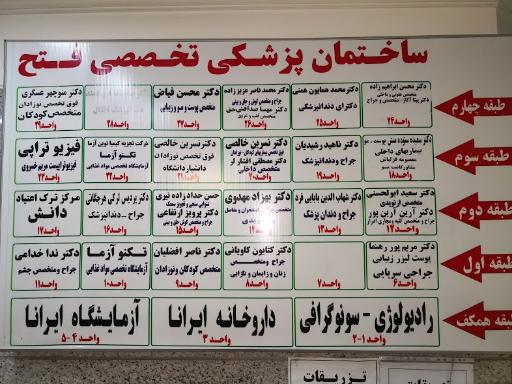 ساختمان پزشکی تخصصی فتح
طبقه چهارم
دکتر محسن ابراهیم زاده
متخصص و جراح
واحد ۲۴
دکتر محمد همایون همتی
دکترای دندانپزشکی
واحد ۲۵
دکتر محمد ناصر عزیز زاده
واحد ۲۶
دکتر محسن فیاض
متخصص پوست و مو و زیبایی
واحد ۲۷
واحد ۲۸
دکتر منوچهر عسگری
فوق تخصص نوزادان
متخصص کودکان
واحد ۲۹
طبقه سوم
بیماریهای داخلی
واحد ۱۸
دکتر ناهید رشیدیان
جراح و دندانپزشک
واحد ۱۹
دکتر نسرین خالصی
متخصص داخلی
واحد ۲۰
دکتر نسرین خالصی
فوق تخصص نوزادان
دانشیار دانشگاه
شرکت تجزیه کیمیا نوین آزما
تکنو آزما
آزمایشگاه تخصصی مواد غذایی
واحد ۲۲
فیزیو تراپی
فیزیوتراپیست مریم خسروی
واحد ۲۳
طبقه دوم
دکتر سعید ابوالحسنی
متخصص ارتوپدی
دکتر آرین آرین پور
واحد ۱۲
دکتر شهاب الدین بابایی فرد
جراح و دندان پزشک
واحد ۱۳
دکتر بهزاد مهدوی
دکتر حسن حداد زاده نیری
دکتر پرویز ارتفاعی
واحد ۱۵
دکتر پردیس ترکی هرچگانی
جراح - دندانپزشک
واحد ۱۶
مرکز ترک اعتیاد
دانش
واحد ۱۷
طبقه اول
دکتر مریم پور رهنما
پوست لیزر زیبایی
جراحی سرپایی
واحد ۶
واحد ۷
دکتر کتایون کاویانی
جراح و متخصص
زنان و زایمان و نازایی
واحد ۸
دکتر ناصر افضلیان
متخصص کودکان و نوزادان
واحد ۹
تکنو آزما
آزمایشگاه تخصصی مواد غذایی
واحد ۱۰
دکتر ندا خدامی
جراح و متخصص چشم
واحد ۱۱
طبقه همکف
رادیولوژی - سونوگرافی
واحد ۲-۱
داروخانه ایرانا
واحد ۳
آزمایشگاه ایرانا
واحد ۵-۴
تزریقات